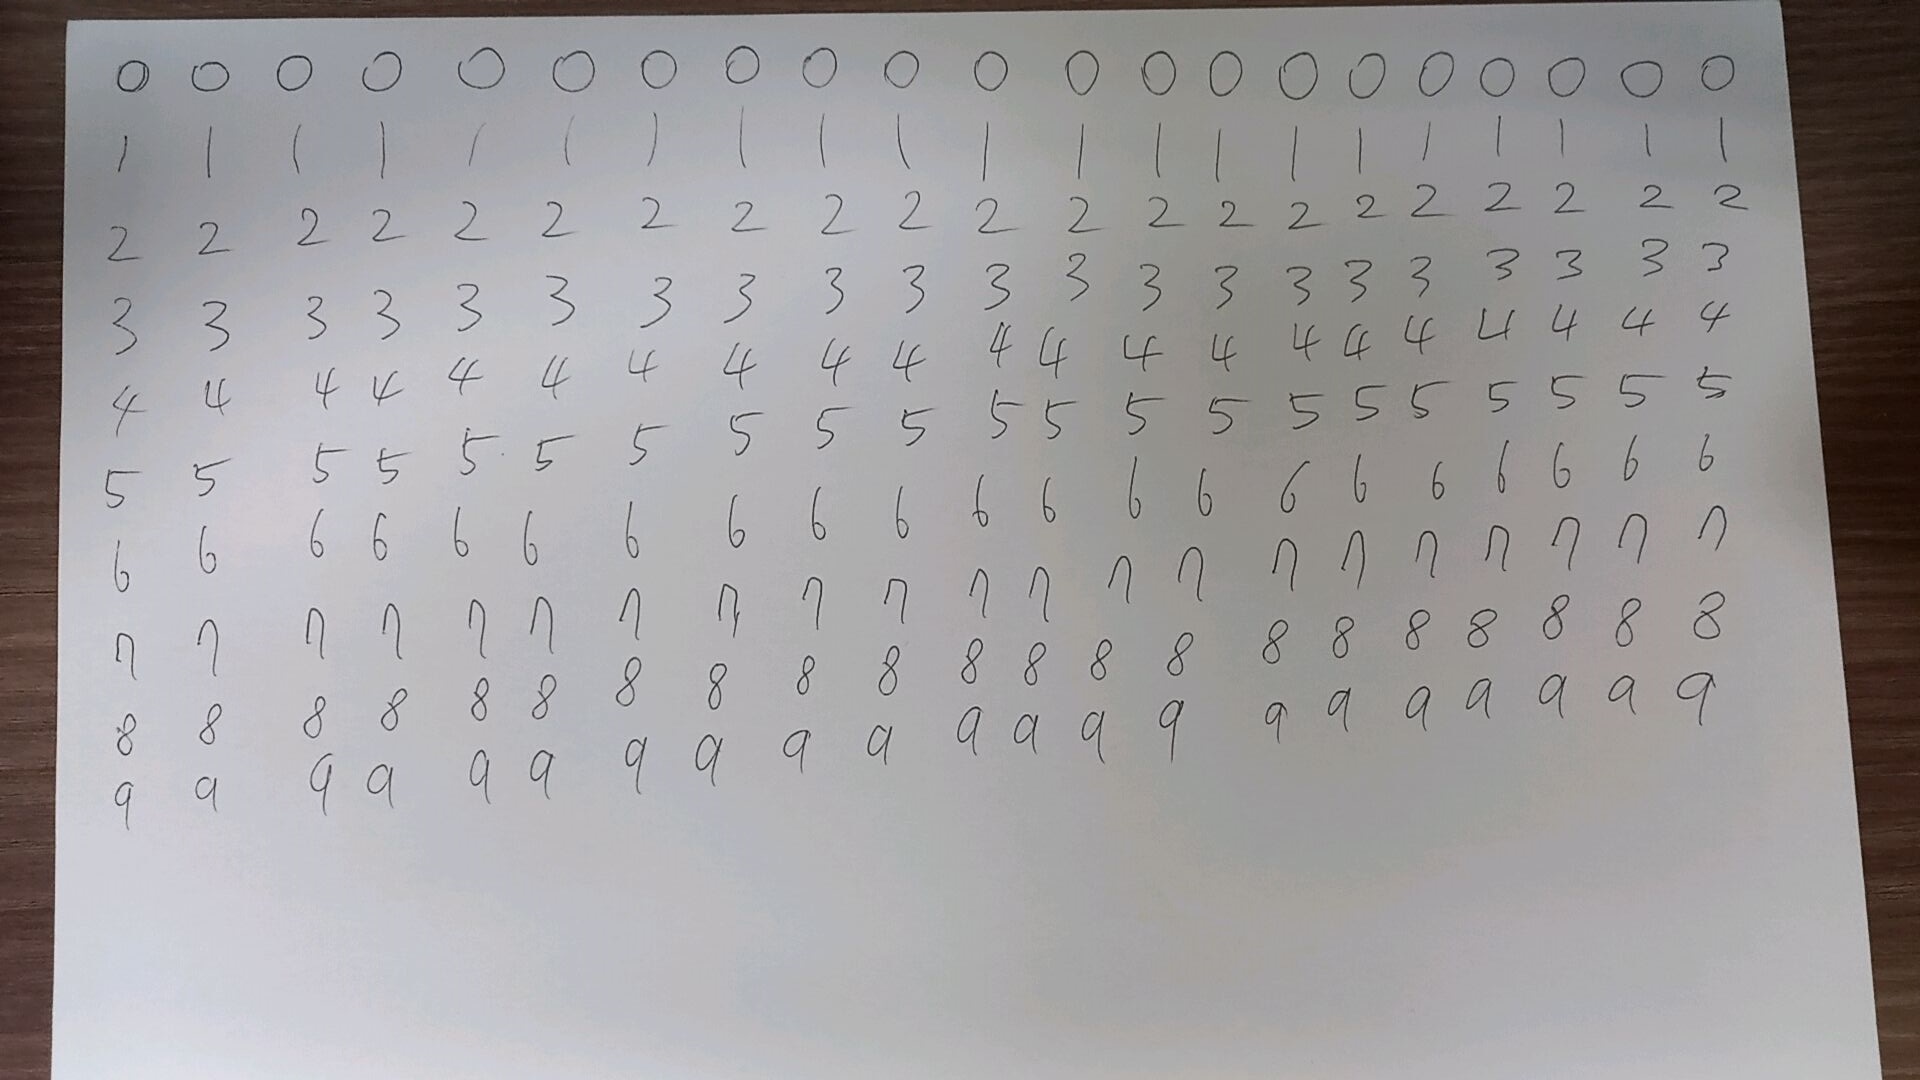 0 0 0 0 0 0 0 0 0 0 0 0 0 0 0 0 0 0 0 0 0
1 1 1 1 1 1 1 1 1 1 1 1 1 1 1 1 1 1 1 1 1
2 2 2 2 2 2 2 2 2 2 2 2 2 2 2 2 2 2 2 2 2
3 3 3 3 3 3 3 3 3 3 3 3 3 3 3 3 3 3 3 3 3
4 4 4 4 4 4 4 4 4 4 4 4 4 4 4 4 4 4 4 4 4
5 5 5 5 5 5 5 5 5 5 5 5 5 5 5 5 5 5 5 5 5
6 6 6 6 6 6 6 6 6 6 6 6 6 6 6 6 6 6 6 6 6
7 7 7 7 7 7 7 7 7 7 7 7 7 7 7 7 7 7 7 7 7
8 8 8 8 8 8 8 8 8 8 8 8 8 8 8 8 8 8 8 8 8
9 9 9 9 9 9 9 9 9 9 9 9 9 9 9 9 9 9 9 9 9